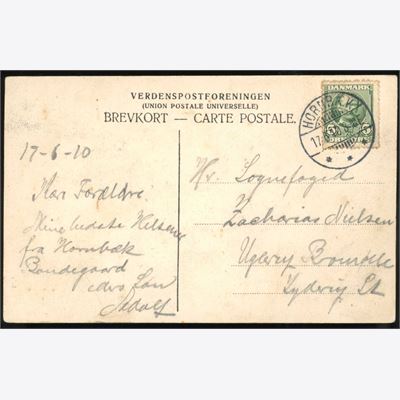 VERDENSPOSTFORENINGEN
(UNION POSTALE UNIVERSELLE)
BREVKORT — CARTE POSTALE.
DANMARK
HORNBÆK
17.6.10
17-6-10
Kære Forældre.
Mine bedste Hilsener
fra Hornbæk
Bondegaard
eders Søn
Adolf
Hr. Sognefoged
Zacharias Nielsen
Uglerup
St